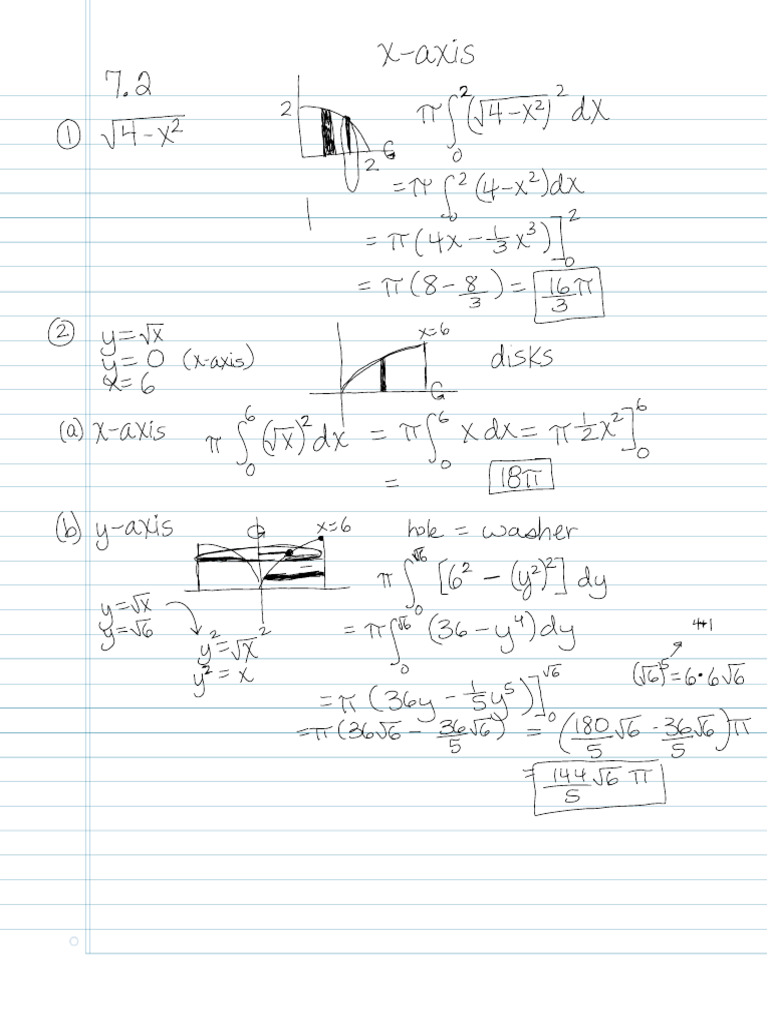 x-axis
7.2
① √4-x² 2 2 π∫₀² (√4-x²)² dx
= π∫₀² (4-x²)dx
= π(4x - 1/3 x³)]₀²
= π(8 - 8/3) = 16/3 π
② y=√x x=6
y=0 (x-axis) disks
x=6
(a) x-axis π∫₀⁶ (√x)² dx = π∫₀⁶ x dx = π 1/2 x²]₀⁶
= 18π
(b) y-axis x=6 hole = washer
π∫₀^√6 [6² - (y²)²] dy
y=√x
y=√6
y² = √x²
y² = x
= π∫₀^√6 (36-y⁴)dy
4+1
(√6)⁵ = 6·6√6
= π(36y - 1/5 y⁵)]₀^√6
= π(36√6 - 36/5 √6) = (180/5 √6 - 36/5 √6)π
= 144/5 √6 π